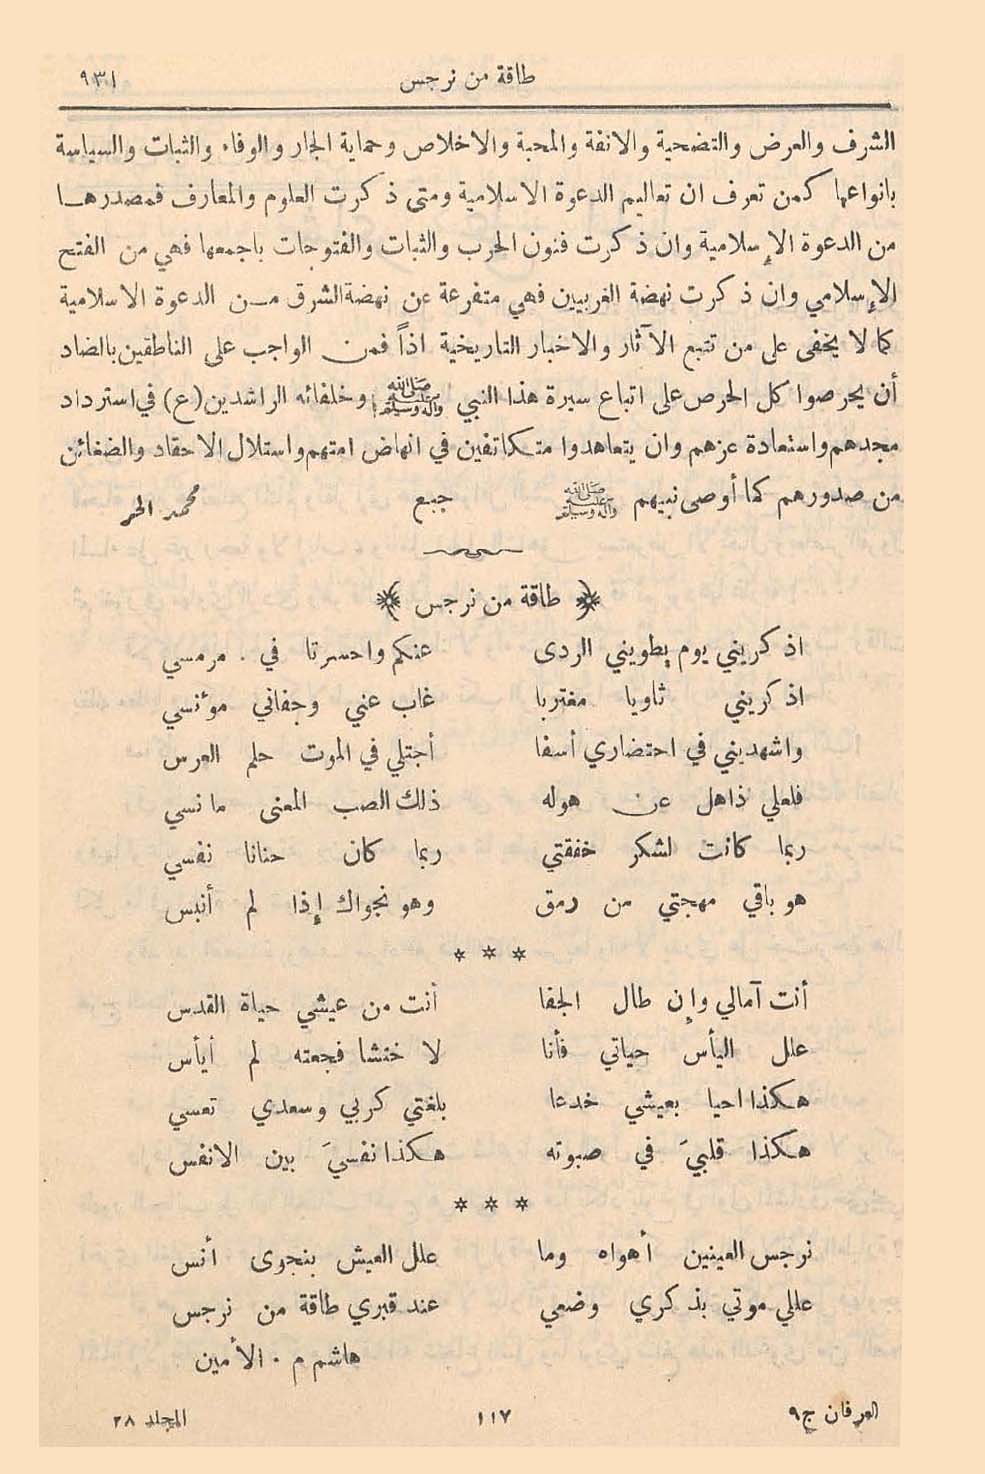 طاقة من نرجس ٩٣١
الشرف والعرض والتضحية والانفة والمحبة والاخلاص وحماية الجار والوفاء والثبات والسياسة
بانواعها كمن تعرف ان تعاليم الدعوة الاسلامية ومتى ذكرت العلوم والمعارف فمصدرها
من الدعوة الإسلامية وان ذكرت فنون الحرب والثبات والفتوحات باجمعها فهي من الفتح
الإسلامي وان ذكرت نهضة الغربيين فهي متفرعة عن نهضة الشرق من الدعوة الاسلامية
كما لا يخفى على من تتبع الآثار والاخبار التاريخية اذاً فمن الواجب على الناطقين بالضاد
أن يحرصوا كل الحرص على اتباع سيرة هذا النبي صلى الله عليه وآله وسلم وخلفائه الراشدين (ع) في استرداد
مجدهم واستعادة عزهم وان يتعاهدوا متكاتفين في انهاض امتهم واستلال الاحقاد والضغائن
من صدورهم كما أوصى نبيهم صلى الله عليه وآله وسلم جبع محمد الحر
﴿ طاقة من نرجس ﴾
اذكريني يوم يطويني الردى عنكم واحسرتا في . مرمسي
اذكريني ثاويا مغتربا غاب عني وجفاني مؤنسي
واشهديني في احتضاري أسفا أجتلي في الموت حلم العرس
فلعلي ذاهل عن هوله ذلك الصب المعنى ما نسي
ربما كانت لشكر خفقتي ربما كان حنانا نفسي
هو باقي مهجتي من رمق وهو نجواك إذا لم أنبس
* * *
أنت آمالي وإن طال الجفا أنت من عيشي حياة القدس
علل اليأس حياتي فأنا لا ختشا فجعته لم أيأس
هكذا احيا بعيشي خدعا بلغتي كربي وسعدي تعسي
هكذا قلبيَ في صبوته هكذا نفسيَ بين الانفس
* * *
نرجس العينين أهواه وما علل العيش بنجوى أنس
عللي موتي بذكري وضعي عند قبري طاقة من نرجس
هاشم م . الأمين
العرفان ج٩ ١١٧ المجلد ٢٨